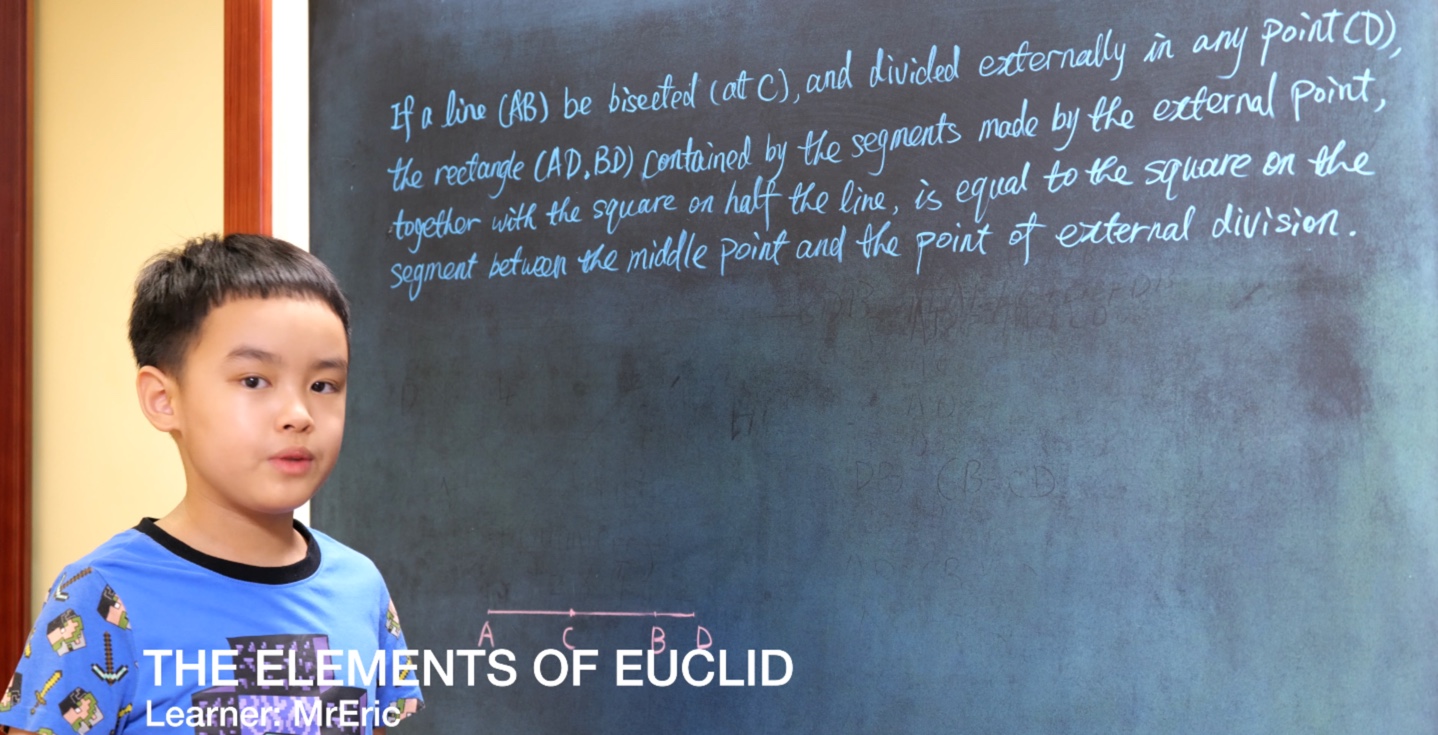 If a line (AB) be bisected (at C), and divided externally in any point (D),
the rectangle (AD.BD) contained by the segments made by the external point,
together with the square on half the line, is equal to the square on the
segment between the middle point and the point of external division.
A C B D
THE ELEMENTS OF EUCLID
Learner: MrEric